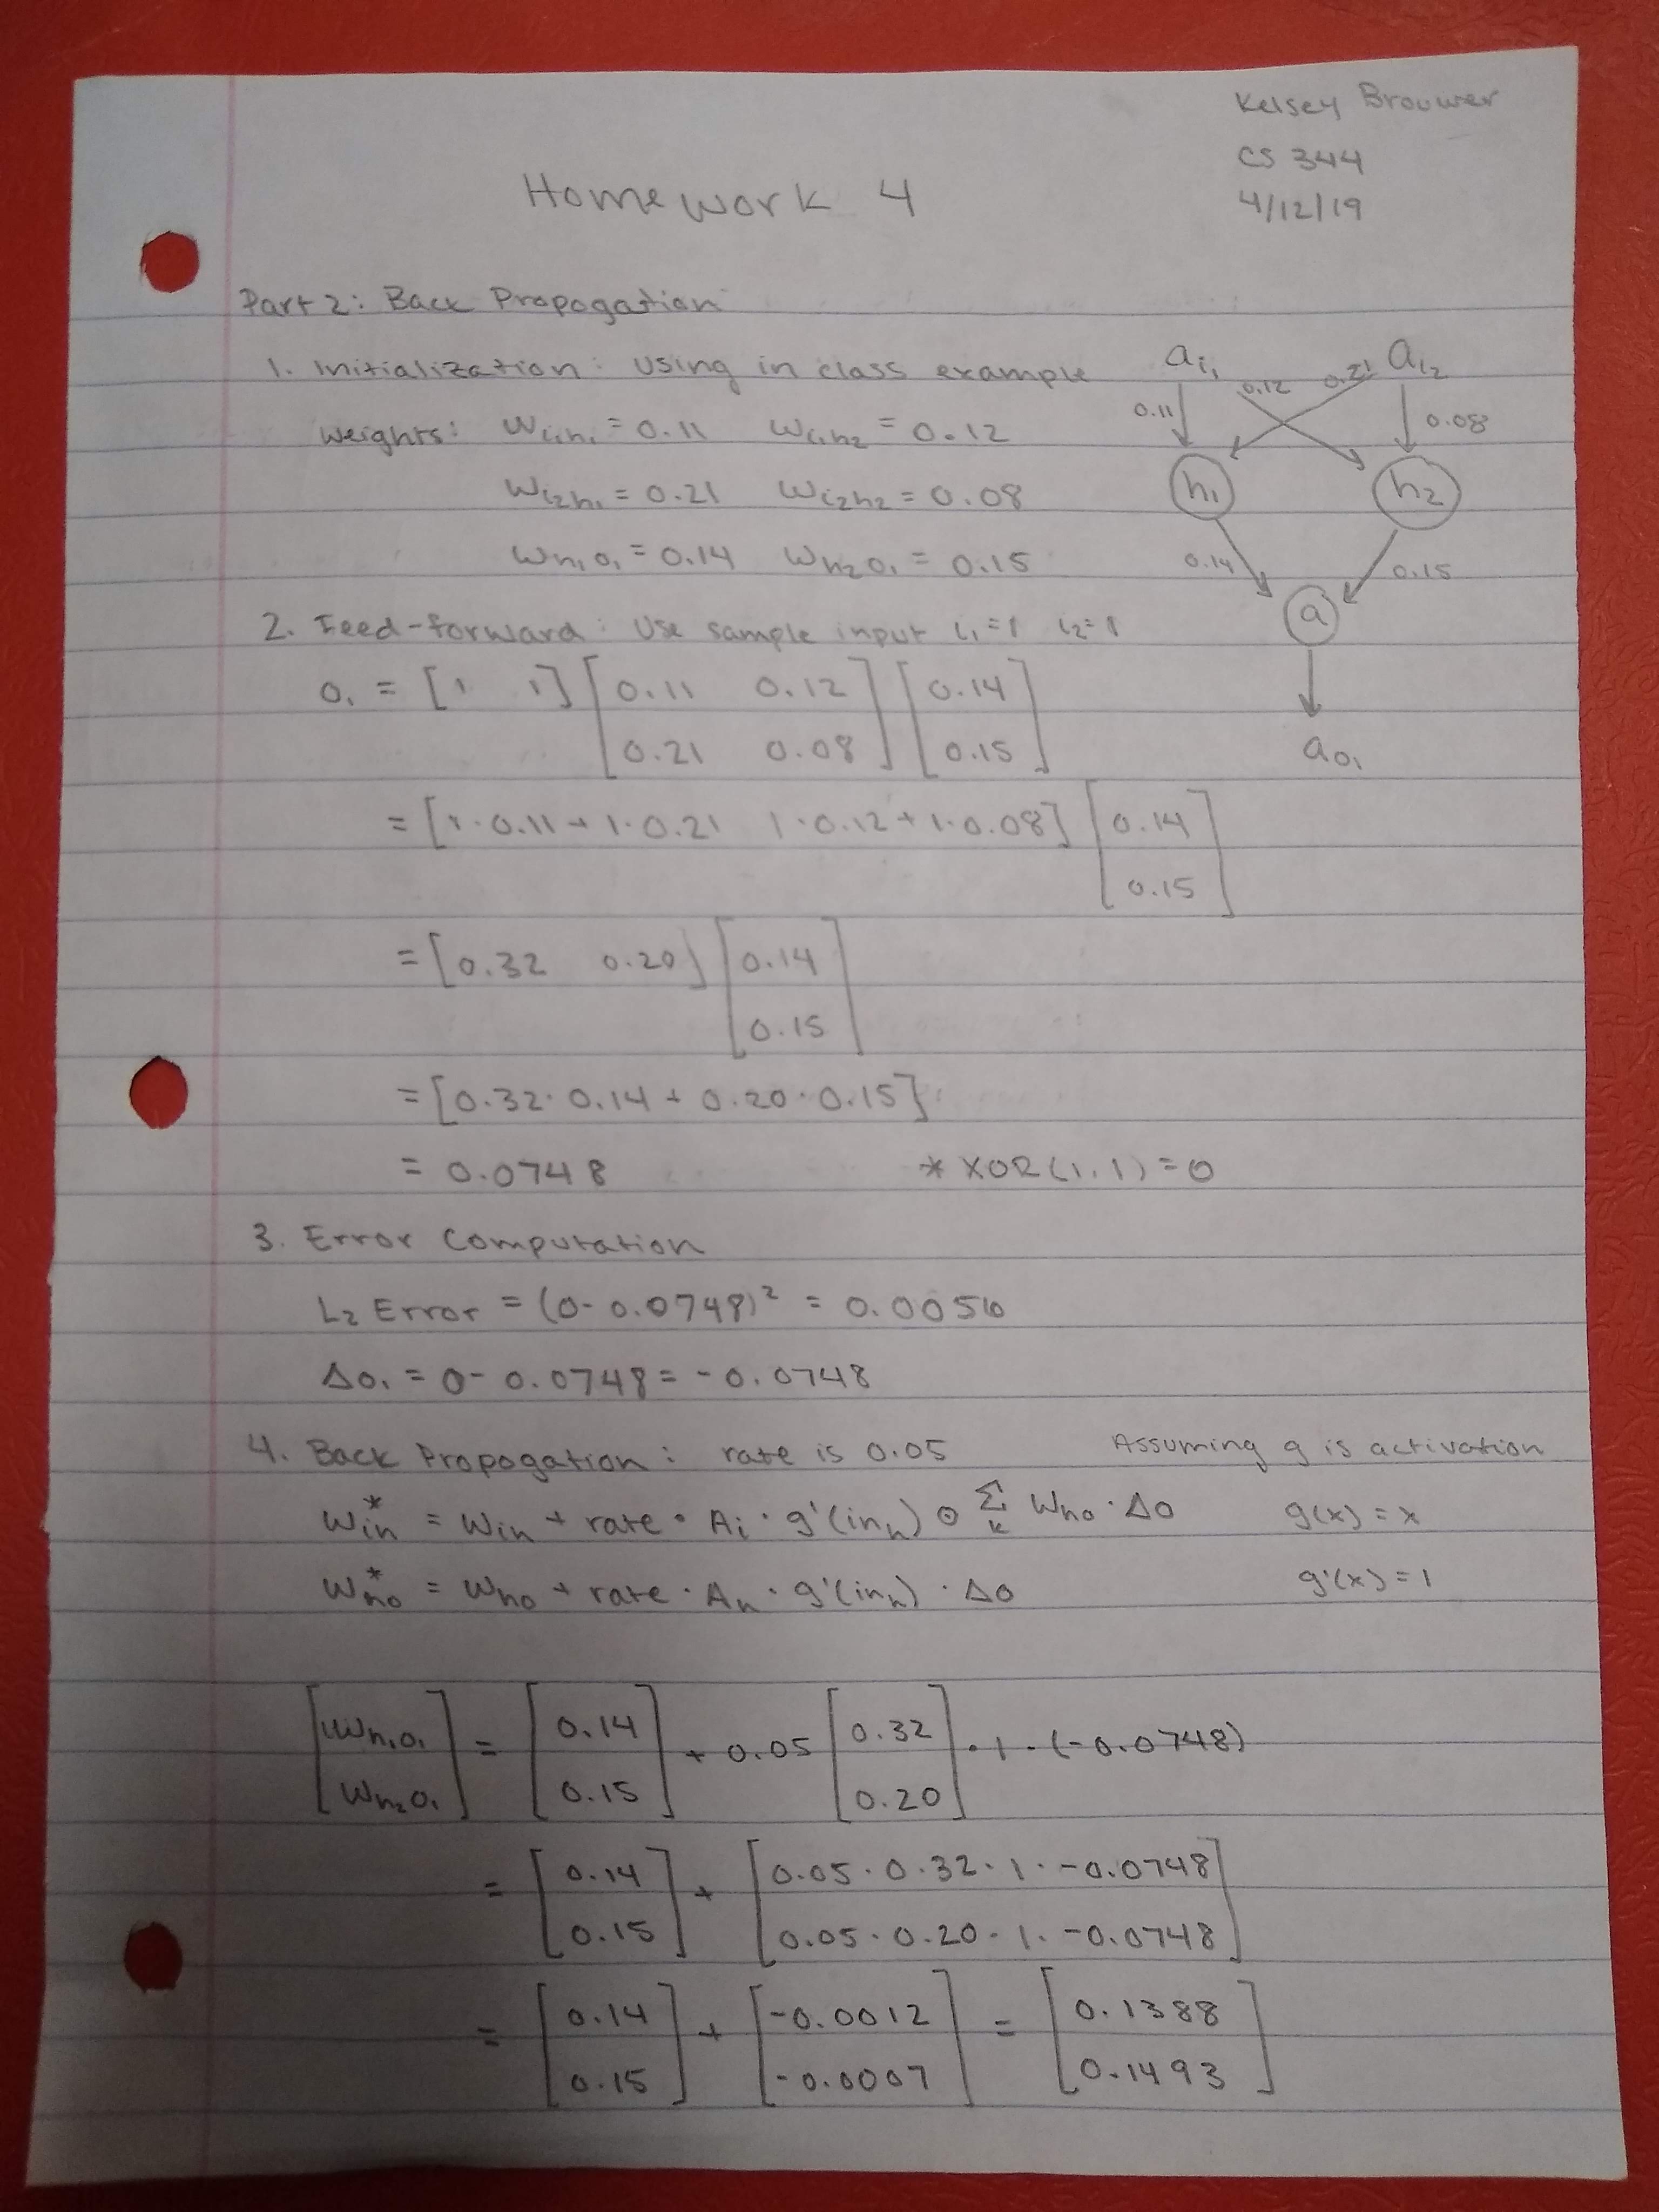 Kelsey Brouwer
CS 344
4/12/19
Homework 4
Part 2: Back Propogation
1. Initialization: Using in class example
Weights: Wi₁h₁ = 0.11 Wi₁h₂ = 0.12
Wi₂h₁ = 0.21 Wi₂h₂ = 0.08
Wh₁o₁ = 0.14 Wh₂o₁ = 0.15
ai₁ ai₂
0.11 0.12 0.21 0.08
h₁ h₂
0.14 0.15
a
ao₁
2. Feed-forward: Use sample input i₁=1 i₂=1
o₁ = [1 1] [0.11 0.12] [0.14]
[0.21 0.08] [0.15]
= [1·0.11 + 1·0.21 1·0.12 + 1·0.08] [0.14]
[0.15]
= [0.32 0.20] [0.14]
[0.15]
= [0.32·0.14 + 0.20·0.15]
= 0.0748 * XOR(1,1) = 0
3. Error Computation
L₂ Error = (0-0.0748)² = 0.0056
Δo₁ = 0-0.0748 = -0.0748
4. Back Propogation: rate is 0.05 Assuming g is activation
Wih* = Wih + rate · Ai · g'(inh) ⊙ Σk Who · Δo g(x) = x
Who* = Who + rate · Ah · g'(inh) · Δo g'(x) = 1
[Wh₁o₁] = [0.14] + 0.05 [0.32] · 1 · (-0.0748)
[Wh₂o₁] [0.15] [0.20]
= [0.14] + [0.05 · 0.32 · 1 · -0.0748]
[0.15] [0.05 · 0.20 · 1 · -0.0748]
= [0.14] + [-0.0012] = [0.1388]
[0.15] [-0.0007] [0.1493]